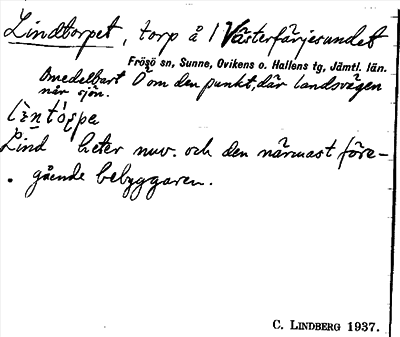 Lindtorpet, torp å 1 Västerfärjesundet
Frösö sn, Sunne, Ovikens o. Hallens tg, Jämtl. län.
Omedelbart Ö om den punkt, där landsvägen
når sjön.
Lind heter nuv. och den närmast före-
gående bebyggaren.
C. LINDBERG 1937.